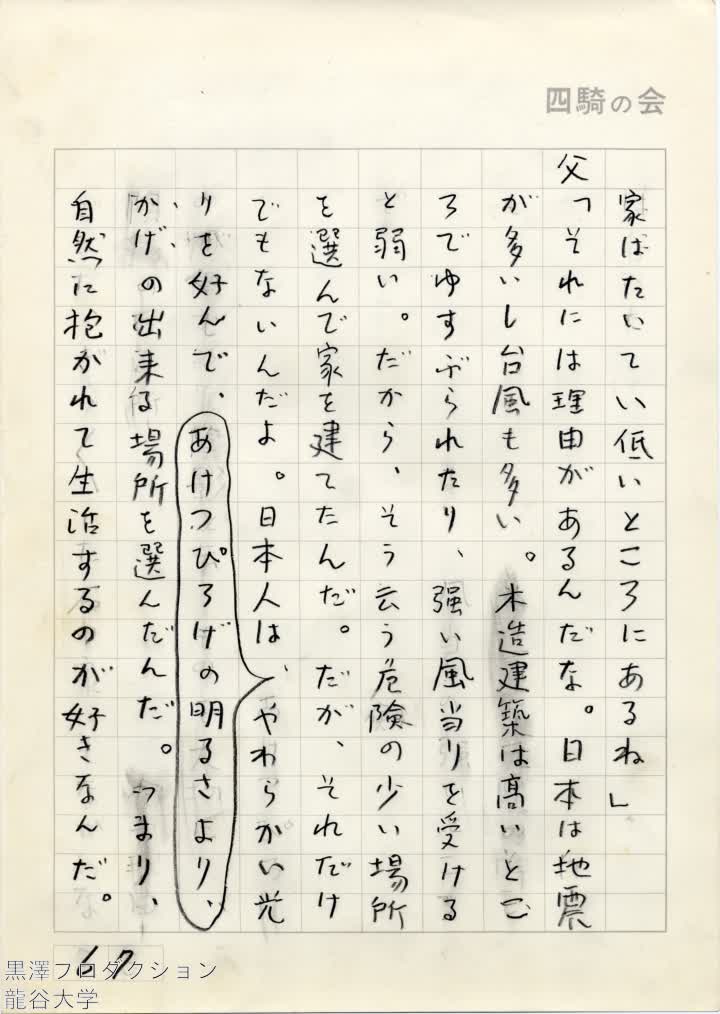 四騎の会
家はたいてい低いところにあるね」
父「それには理由があるんだな。日本は地震
が多いし台風も多い。木造建築は高いとこ
ろでゆすぶられたり、強い風当りを受ける
と弱い。だから、そう云う危険の少い場所
を選んで家を建てたんだ。だが、それだけ
でもないんだよ。日本人は、やわらかい光
りを好んで、あけっぴろげの明るさより、
かげの出来る場所を選んだんだ。つまり、
自然に抱かれて生活するのが好きなんだ。
67
黒澤プロダクション
龍谷大学